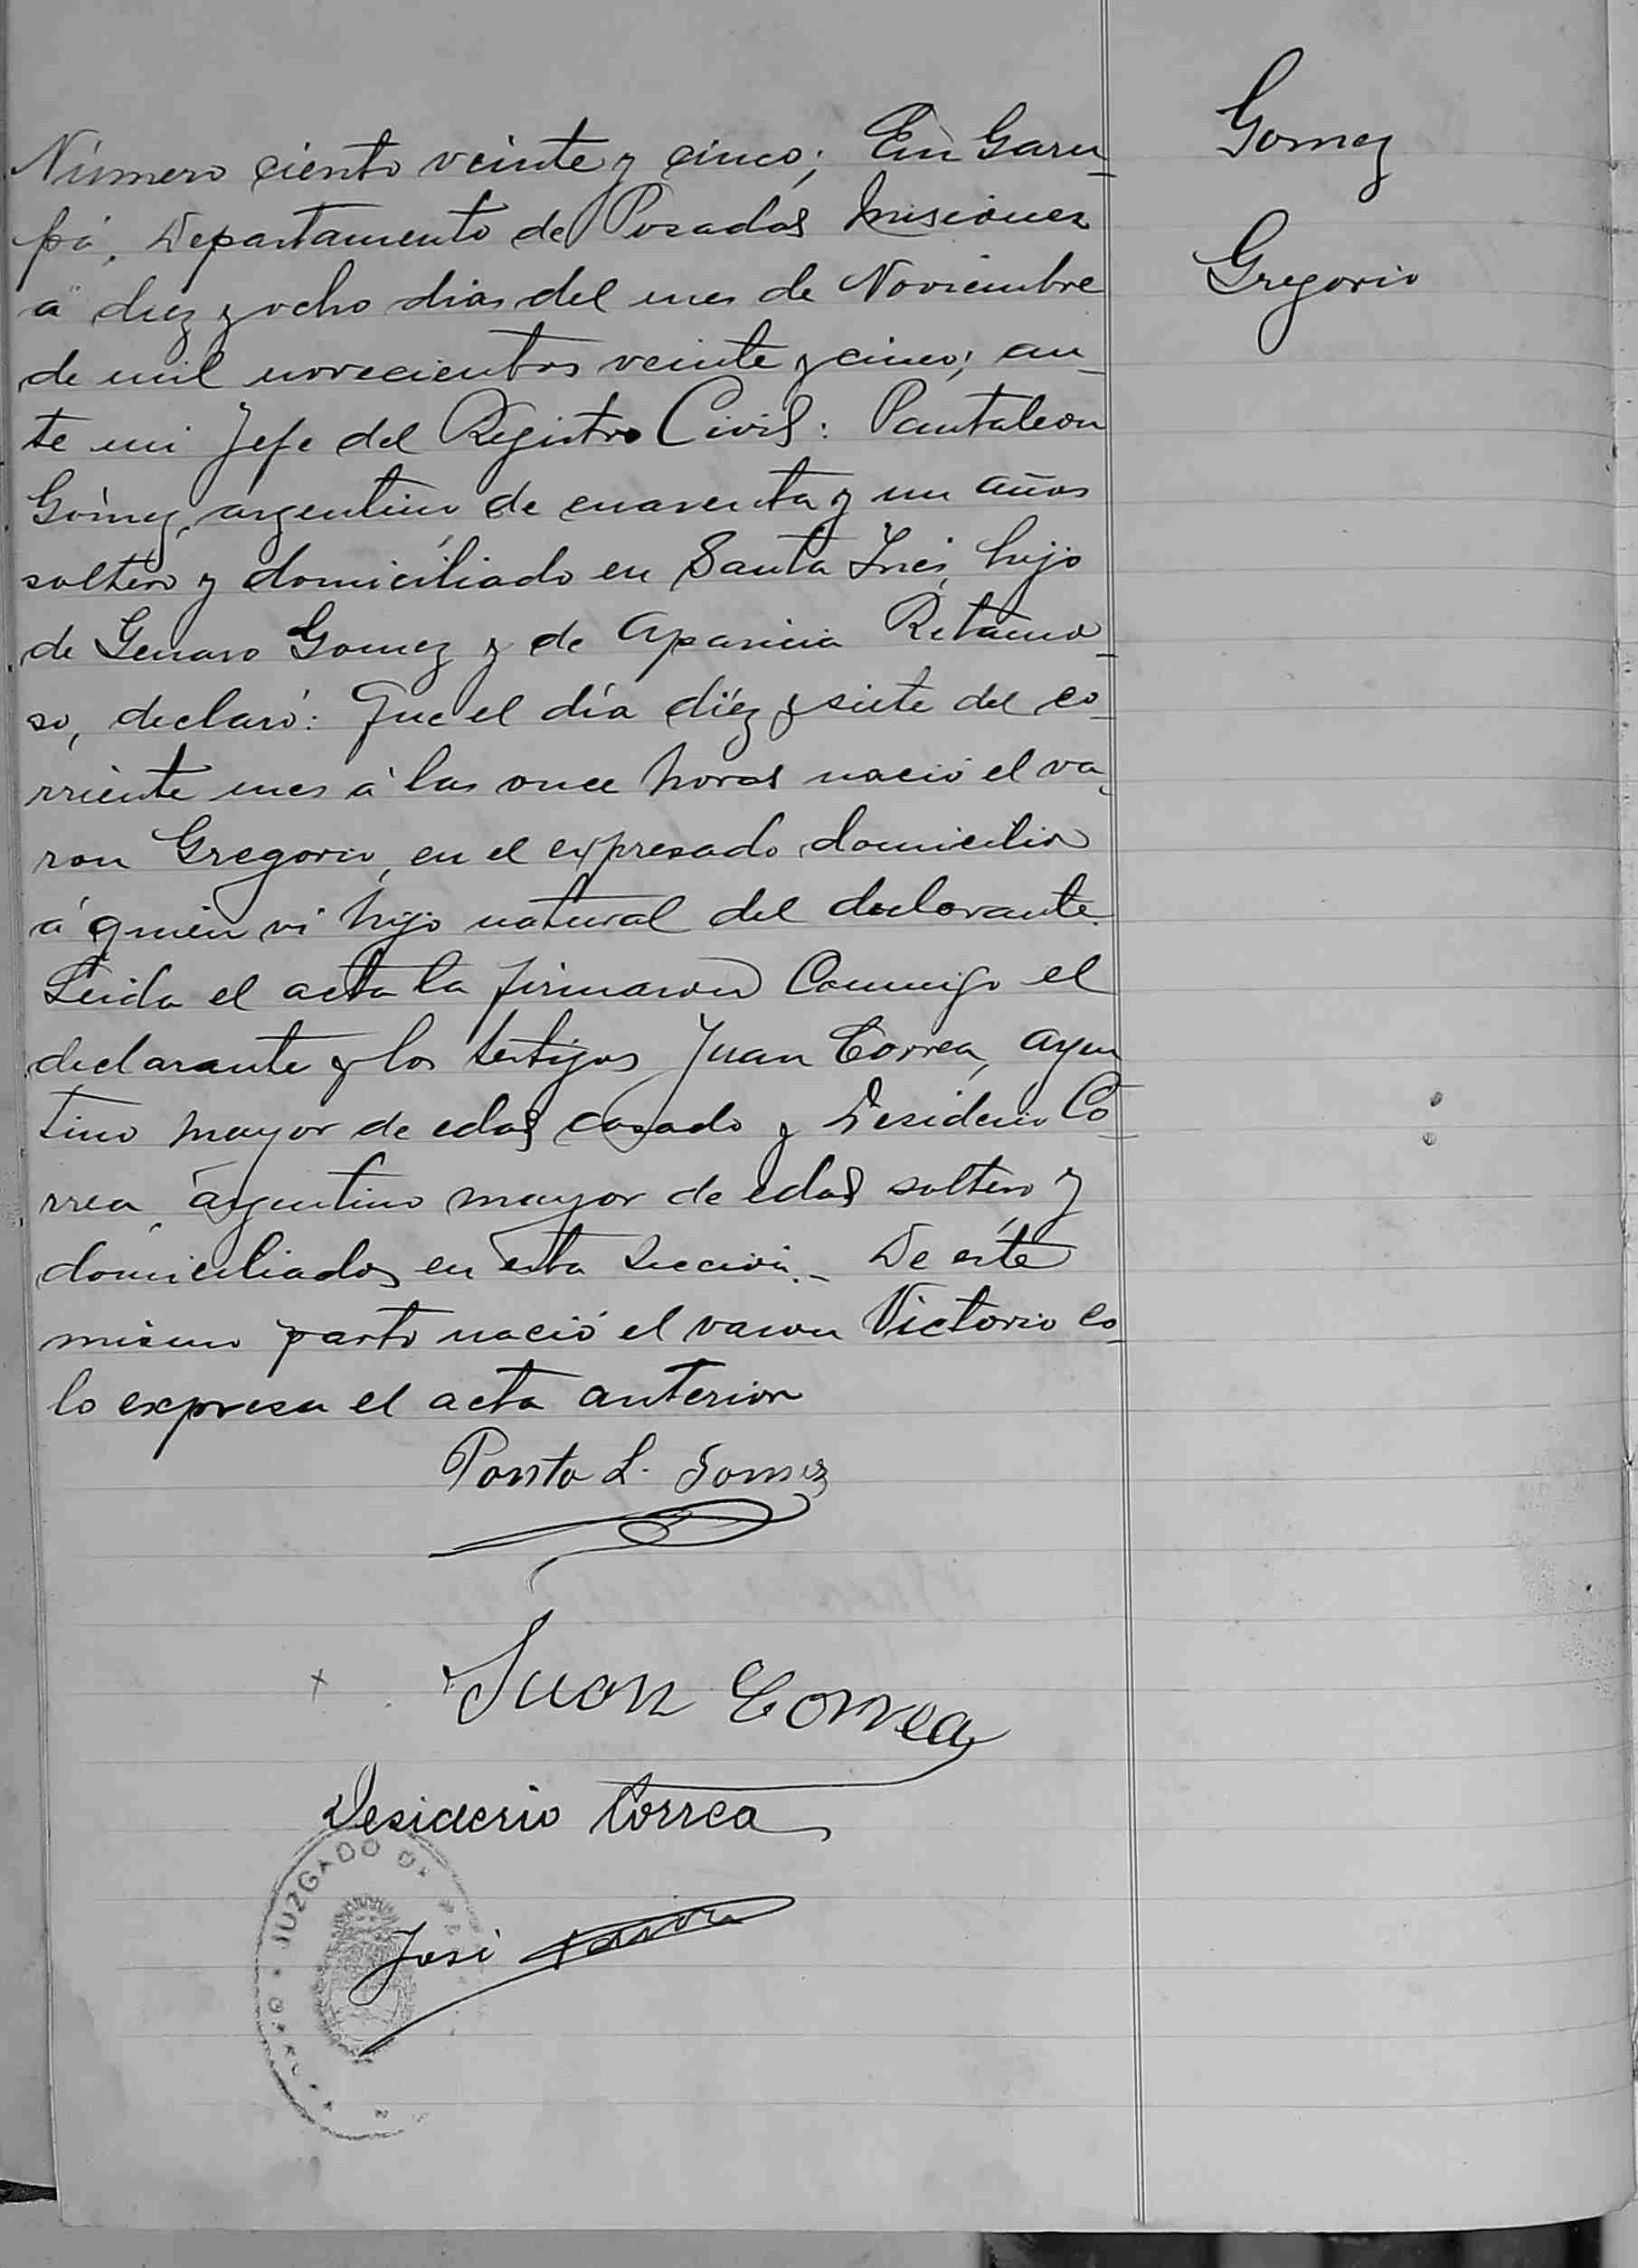 Gomez
Gregorio
Número ciento veinte y cinco; En Garu-
pá, Departamento de Posadas Misiones
á diez y ocho dias del mes de Noviembre
de mil novecientos veinte y cinco; an-
te mi Jefe del Registro Civil: Pantaleon
Gómez, argentino de cuarenta y un años
soltero y domiciliado en Santa Inés, hijo
de Genaro Gomez y de Aparicia Retamo-
so, declaró: Que el día diéz y siete del co-
rriente mes á las once horas nació el va-
ron Gregorio, en el expresado domicilio
á quién vi hijo natural del declarante.
Leida el acta la firmaron Conmigo el
declarante y los testigos Juan Correa, argen
tino mayor de edad casado y Desiderio Co-
rrea, argentino mayor de edad soltero, y
domiciliados en esta Sección.- De éste
mismo parto nació el varon Victorio co-
lo expresa el acta anterior
Panta L. Gomez
Juan Correa
Desiderio Correa
José
JUZGADO DE